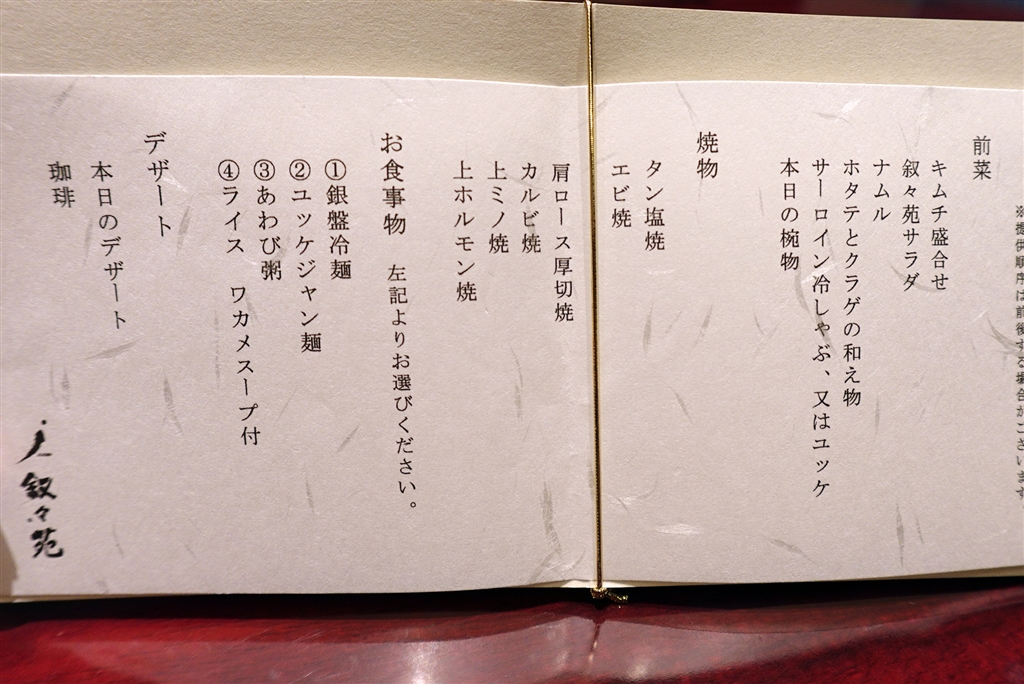 ※提供順序は前後する場合がございます
前菜
キムチ盛合せ
叙々苑サラダ
ナムル
ホタテとクラゲの和え物
サーロイン冷しゃぶ、又はユッケ
本日の椀物
焼物
タン塩焼
エビ焼
肩ロース厚切焼
カルビ焼
上ミノ焼
上ホルモン焼
お食事物　左記よりお選びください。
①銀盤冷麺
②ユッケジャン麺
③あわび粥
④ライス　ワカメスープ付
デザート
本日のデザート
珈琲
叙々苑